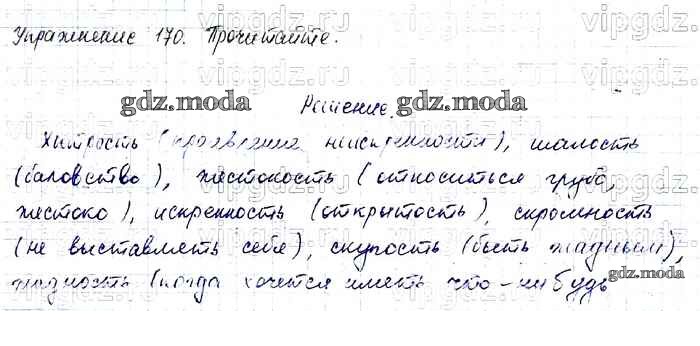 Упражнение 170. Прочитайте.
Решение.
Хитрость (проявление неискренности), шалость
(баловство), жестокость (относиться грубо,
жестоко), искренность (открытость), скромность
(не выставлять себя), скупость (быть жадным),
жадность (когда хочется иметь что-нибудь
vipgdz.ru
gdz.moda
gdz.moda
gdz.moda